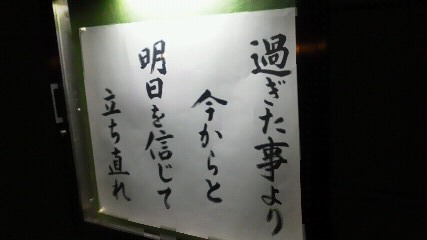 過ぎた事より
今からと
明日を信じて
立ち直れ